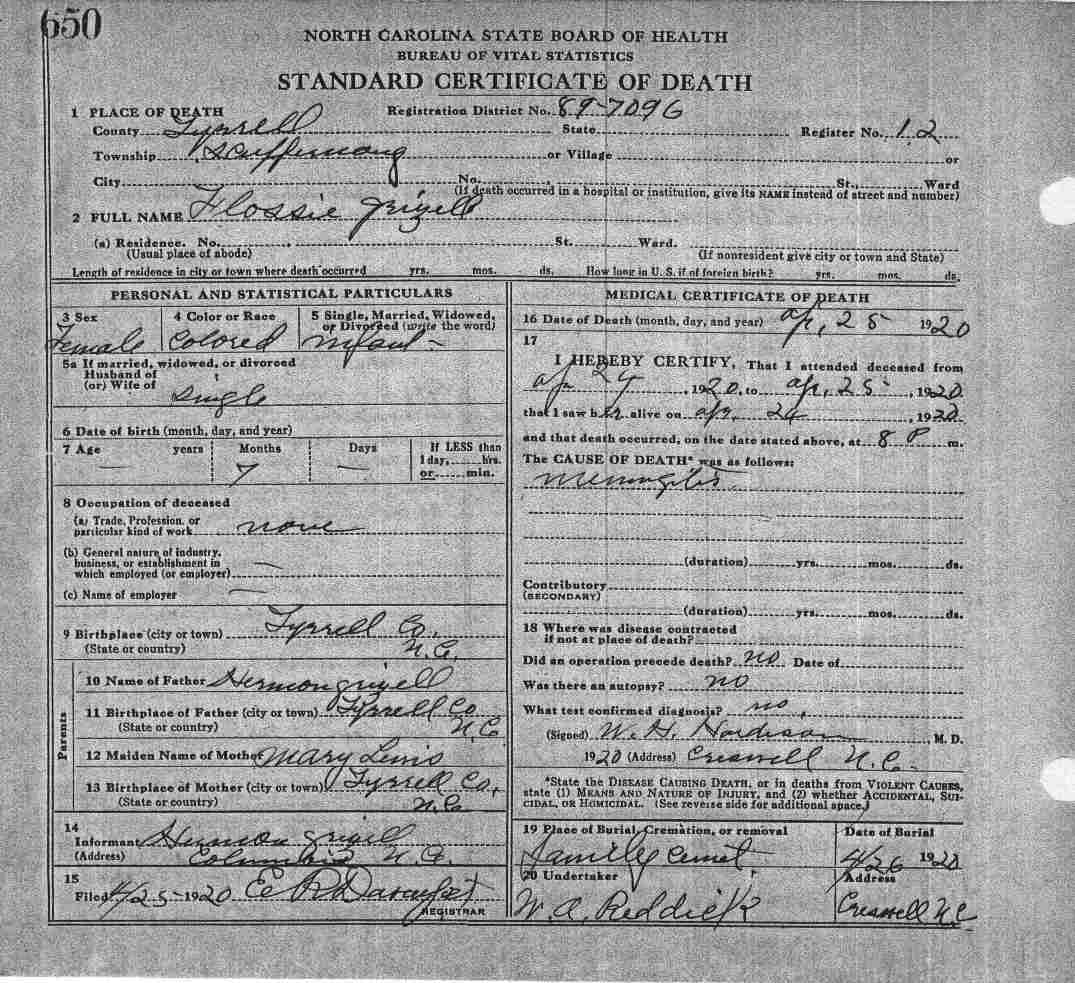 650
NORTH CAROLINA STATE BOARD OF HEALTH
BUREAU OF VITAL STATISTICS
STANDARD CERTIFICATE OF DEATH
1 PLACE OF DEATH Registration District No. 89-7096
County Tyrrell State Register No. 12
Township Scuppernong or Village or
City No. St., Ward
(If death occurred in a hospital or institution, give its NAME instead of street and number)
2 FULL NAME Flossie
(a) Residence. No. St. Ward.
(Usual place of abode) (If nonresident give city or town and State)
Length of residence in city or town where death occurred yrs. mos. ds. How long in U. S. if of foreign birth? yrs. mos. ds.
PERSONAL AND STATISTICAL PARTICULARS
3 Sex 4 Color or Race 5 Single, Married, Widowed, or Divorced (write the word)
Female Colored Infant -
5a If married, widowed, or divorced
Husband of
(or) Wife of
Single
6 Date of birth (month, day, and year)
7 Age years Months Days If LESS than
1 day, hrs.
or min.
— 7 —
8 Occupation of deceased
(a) Trade, Profession, or
particular kind of work none
(b) General nature of industry,
business, or establishment in
which employed (or employer) —
(c) Name of employer —
9 Birthplace (city or town) Tyrrell Co.
(State or country) N.C.
Parents
10 Name of Father Hermon
11 Birthplace of Father (city or town) Tyrrell Co
(State or country) N.C.
12 Maiden Name of Mother Mary Lewis
13 Birthplace of Mother (city or town) Tyrrell Co,
(State or country) N.C
14
Informant Hermon
(Address) Columbia N.C.
15
Filed 4/25-1920 E R
REGISTRAR
MEDICAL CERTIFICATE OF DEATH
16 Date of Death (month, day, and year) Ap, 25 1920
17
I HEREBY CERTIFY, That I attended deceased from
Apr 24, 1920, to Apr, 25, 1920
that I saw her alive on Apr. 24 1920
and that death occurred, on the date stated above, at 8 P m.
The CAUSE OF DEATH* was as follows:
Meningitis
(duration) yrs. mos. ds.
Contributory
(SECONDARY)
(duration) yrs. mos. ds.
18 Where was disease contracted
if not at place of death?
Did an operation precede death? no Date of
Was there an autopsy? no
What test confirmed diagnosis? no,
(Signed) W. H. Hardison M. D.
1920 (Address) Creswell N.C.
*State the DISEASE CAUSING DEATH, or in deaths from VIOLENT CAUSES,
state (1) MEANS AND NATURE OF INJURY, and (2) whether ACCIDENTAL, SUI-
CIDAL, OR HOMICIDAL. (See reverse side for additional space.)
19 Place of Burial, Cremation, or removal Date of Burial
Family Cemet 4/26 1920
20 Undertaker Address
W. A. Reddick Creswell N.C